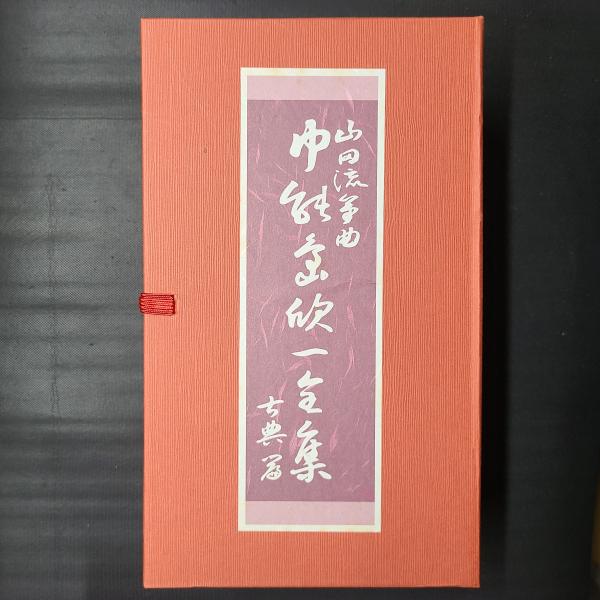 山田流箏曲
中能島欣一全集
古典篇